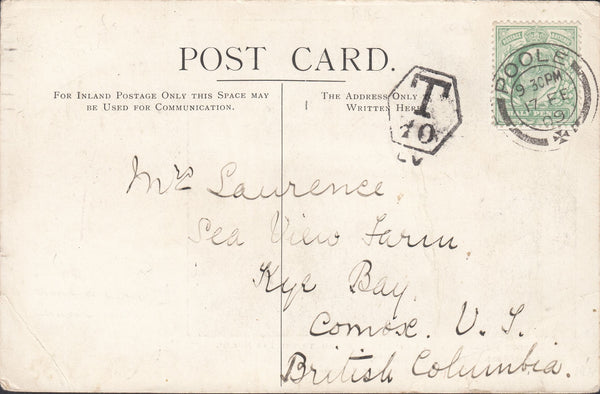 POST CARD.
FOR INLAND POSTAGE ONLY THIS SPACE MAY
BE USED FOR COMMUNICATION.
THE ADDRESS ONLY
WRITTEN HERE
T
10
POOLE
9.30PM
17 FE
09
Mrs Laurence
Sea View Farm.
Kye Bay.
Comox. V. I.
British Columbia.